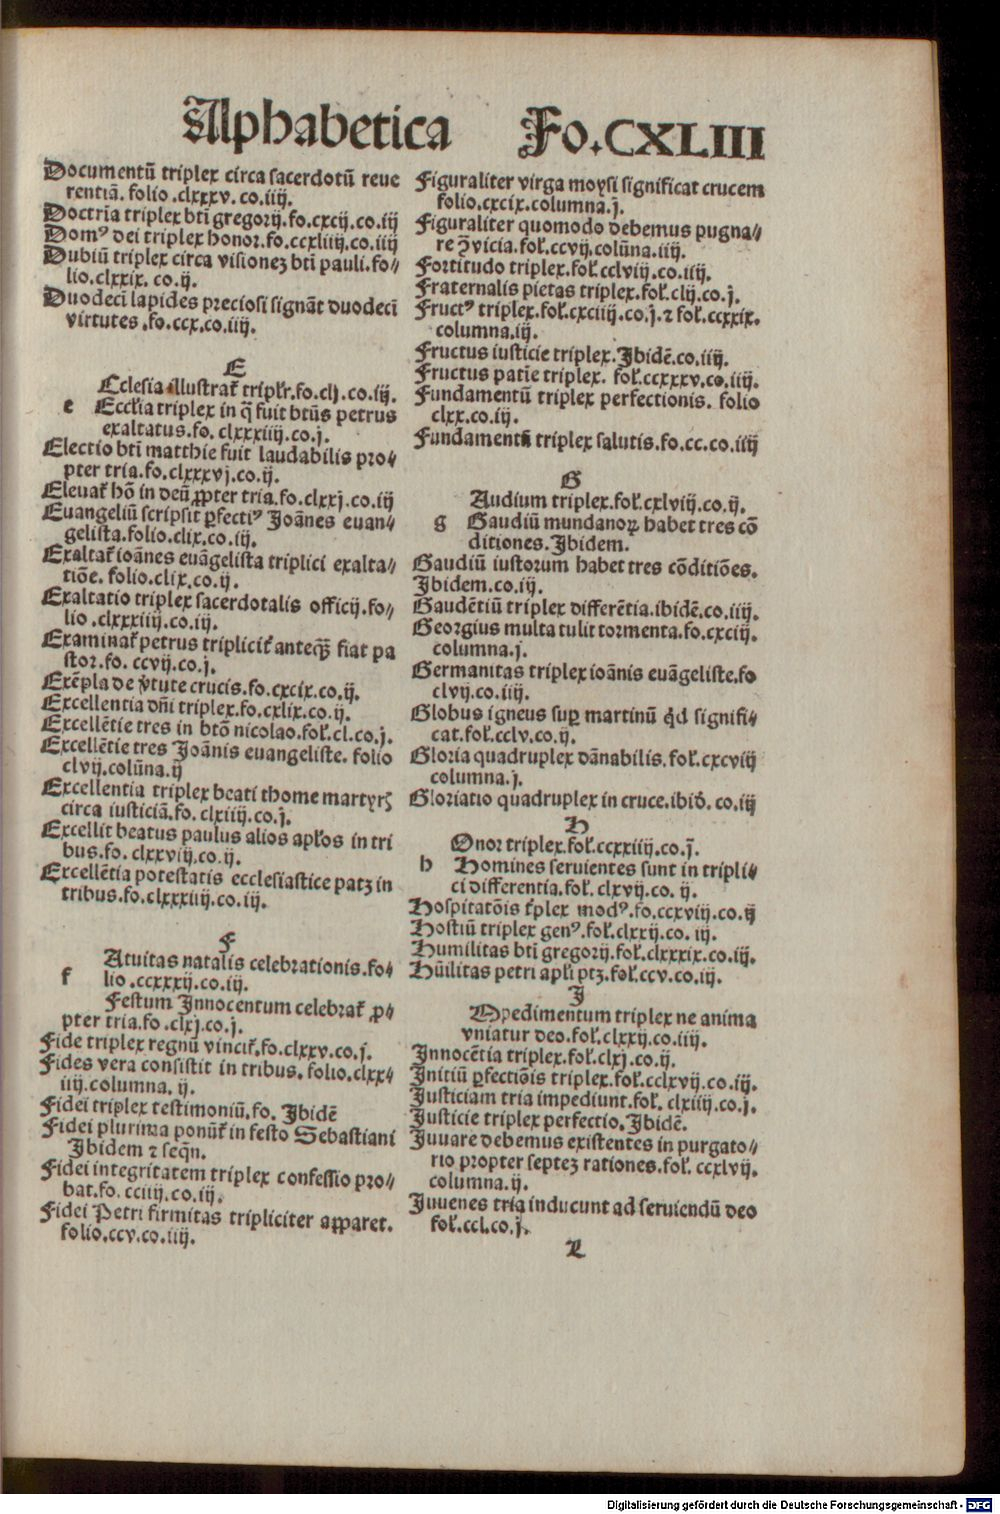 Alphabetica Fo.CXLIII
Documentū triplex circa sacerdotū reue
rentiā. folio .clxxxv. co.iiij.
Doctrīa triplex bt̄i gregorij.fo.cxcij.co.iij
Domꝰ dei triplex honor.fo.ccxliiij.co.iiij
Dubiū triplex circa visionez bt̄i pauli.fo⸗
lio.clxxix. co.ij.
Duodecī lapides preciosi signāt duodecī
virtutes .fo.ccx.co.iiij.
E
Cclesia illustrat̄ tripl̄r.fo.clj.co.iij.
e Eccl̄ia triplex in q̄ fuit bt̄us petrus
exaltatus.fo. clxxxiiij.co.j.
Electio bt̄i matthie fuit laudabilis pro⸗
pter tria.fo.clxxxvj.co.ij.
Eleuat̄ hō in deū ꝓpter tria.fo.clxxj.co.iij
Euangeliū scripsit ꝑfectiꝰ Joānes euan⸗
gelista.folio.clix.co.iij.
Exaltat̄ ioānes euāgelista triplici exalta⸗
tiōe. folio.clix.co.ij.
Exaltatio triplex sacerdotalis officij.fo⸗
lio .clxxxiiij.co.iij.
Examinat̄ petrus triplicit̄ anteqꝫ̄ fiat pa
stor.fo. ccvij.co.j.
Exēpla de v̄tute crucis.fo.cxcix.co.ij.
Excellentia dn̄i triplex.fo.cxlix.co.ij.
Excellētie tres in btō nicolao.fol̄.cl.co.j.
Excellētie tres Joānis euangeliste. folio
clvij.colūna.ij
Excellentia triplex beati thome martyrꝭ
circa iusticiā.fo. clxiiij.co.j.
Excellit beatus paulus alios apl̄os in tri
bus.fo. clxxviij.co.ij.
Excellētia potestatis ecclesiastice patꝫ in
tribus.fo.clxxxiiij.co.iij.
F
Atuitas natalis celebrationis.fo⸗
f lio .ccxxxij.co.iij.
Festum Innocentum celebrat̄ ꝓ⸗
pter tria.fo .clxj.co.j.
Fide triplex regnū vincit̄.fo.clxxv.co.j.
Fides vera consistit in tribus. folio.clxx⸗
iiij.columna. ij.
Fidei triplex testimoniū.fo. Ibidē
Fidei plurima ponūt̄ in festo Sebastiani
Ibidem ⁊ seqn̄.
Fidei integritatem triplex confessio pro⸗
bat.fo. cciiij.co.iij.
Fidei Petri firmitas tripliciter aꝓparet.
folio.ccv.co.iiij.
Figuraliter virga moysi significat crucem
folio.cxcix.columna.j.
Figuraliter quomodo debemus pugna⸗
re ꝯ̄ vicia.fol̄.ccvij.colūna.iiij.
Fortitudo triplex.fol̄.cclviij.co.iiij.
Fraternalis pietas triplex.fol̄.clij.co.j.
Fructꝰ triplex.fol̄.cxciiij.co.j.⁊ fol̄.ccxxix.
columna.iij.
Fructus iusticie triplex.Ibidē.co.iiij.
Fructus patīe triplex. fol̄.ccxxxv.co.iiij.
Fundamentū triplex perfectionis. folio
clxx.co.iij.
Fundamentū triplex salutis.fo.cc.co.iiij
G
Audium triplex.fol̄.cxlviij.co.ij.
g Gaudiū mundanoꝝ habet tres cō
ditiones.Ibidem.
Gaudiū iustorum habet tres cōditiōes.
Ibidem.co.iij.
Gaudētiū triplex differētia.ibidē.co.iiij.
Georgius multa tulit tormenta.fo.cxciij.
columna.j.
Germanitas triplex ioānis euāgeliste.fo
clvij.co.iiij.
Globus igneus suꝑ martinū qd̄ signifi⸗
cat.fol̄.cclv.co.ij.
Gloria quadruplex dānabilis.fol̄.cxcviij
columna.j.
Gloriatio quadruplex in cruce.ibid̄. co.iij
H
Onor triplex.fol̄.ccxxiiij.co.j.
h Homines seruientes sunt in tripli⸗
ci differentia.fol̄. clxvij.co. ij.
Hospitatōis t̄plex modꝰ.fo.ccxviij.co.ij
Hostiū triplex genꝰ.fol̄.clxxij.co. iij.
Humilitas bt̄i gregorij.fol̄.clxxxix.co.iij.
Hūilitas petri apl̄i ptꝫ.fol̄.ccv.co.iij.
I
Mpedimentum triplex ne anima
vniatur deo.fol̄.clxxij.co.iiij.
Innocētia triplex.fol̄.clxj.co.ij.
Initiū ꝑfectiōis triplex.fol̄.cclxvij.co.iij.
Iusticiam tria impediunt.fol̄. clxiiij.co.j.
Iusticie triplex perfectio.Ibidē.
Iuuare debemus existentes in purgato⸗
rio propter septeꝫ rationes.fol̄. ccxlvij.
columna.ij.
Iuuenes tria inducunt ad seruiendū deo
fol̄.ccl.co.j.
Digitalisierung gefördert durch die Deutsche Forschungsgemeinschaft - DFG